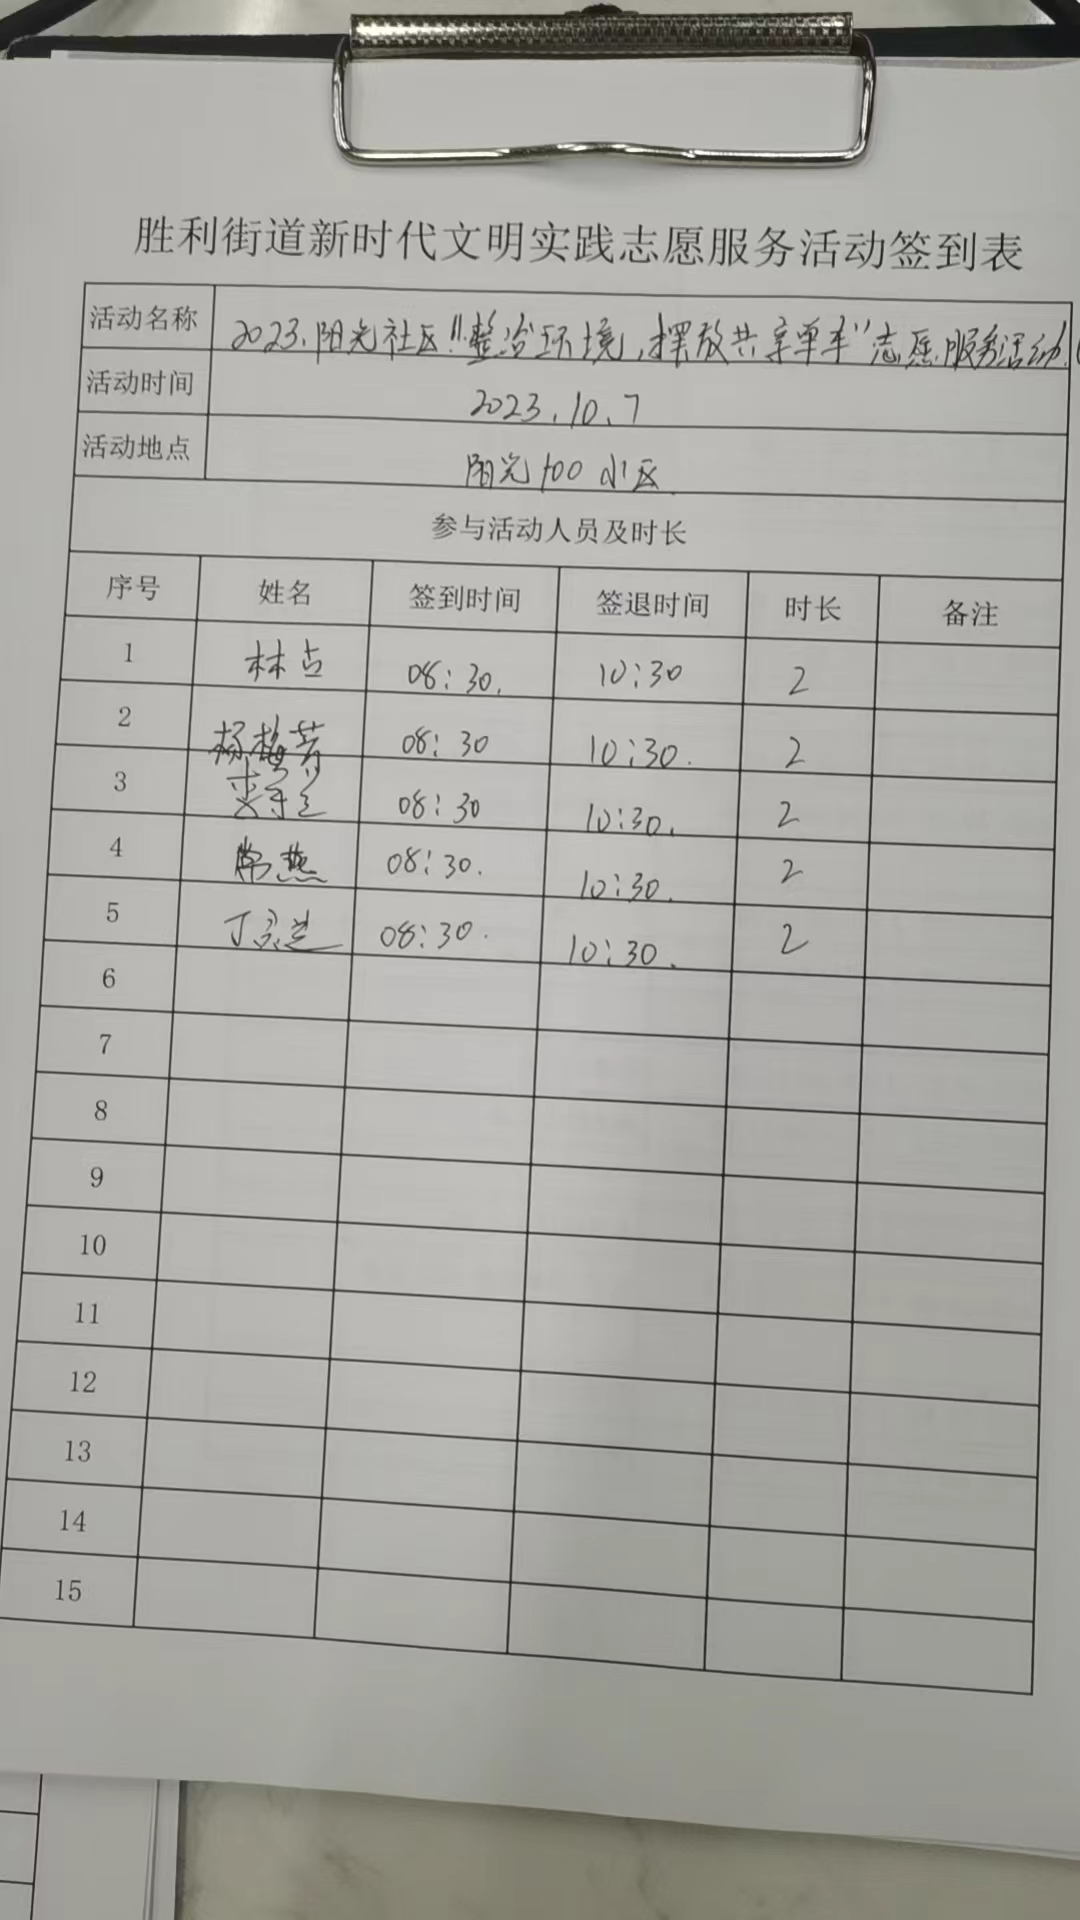 胜利街道新时代文明实践志愿服务活动签到表
活动名称 2023.阳光社区"整治环境,摆放共享单车"志愿服务活动.
活动时间 2023.10.7
活动地点 阳光100小区.
参与活动人员及时长
序号 姓名 签到时间 签退时间 时长 备注
1 08:30. 10:30 2
2 杨梅芳 08:30 10:30. 2
3 08:30 10:30. 2
4 常燕 08:30. 10:30. 2
5 08:30. 10:30. 2
6
7
8
9
10
11
12
13
14
15